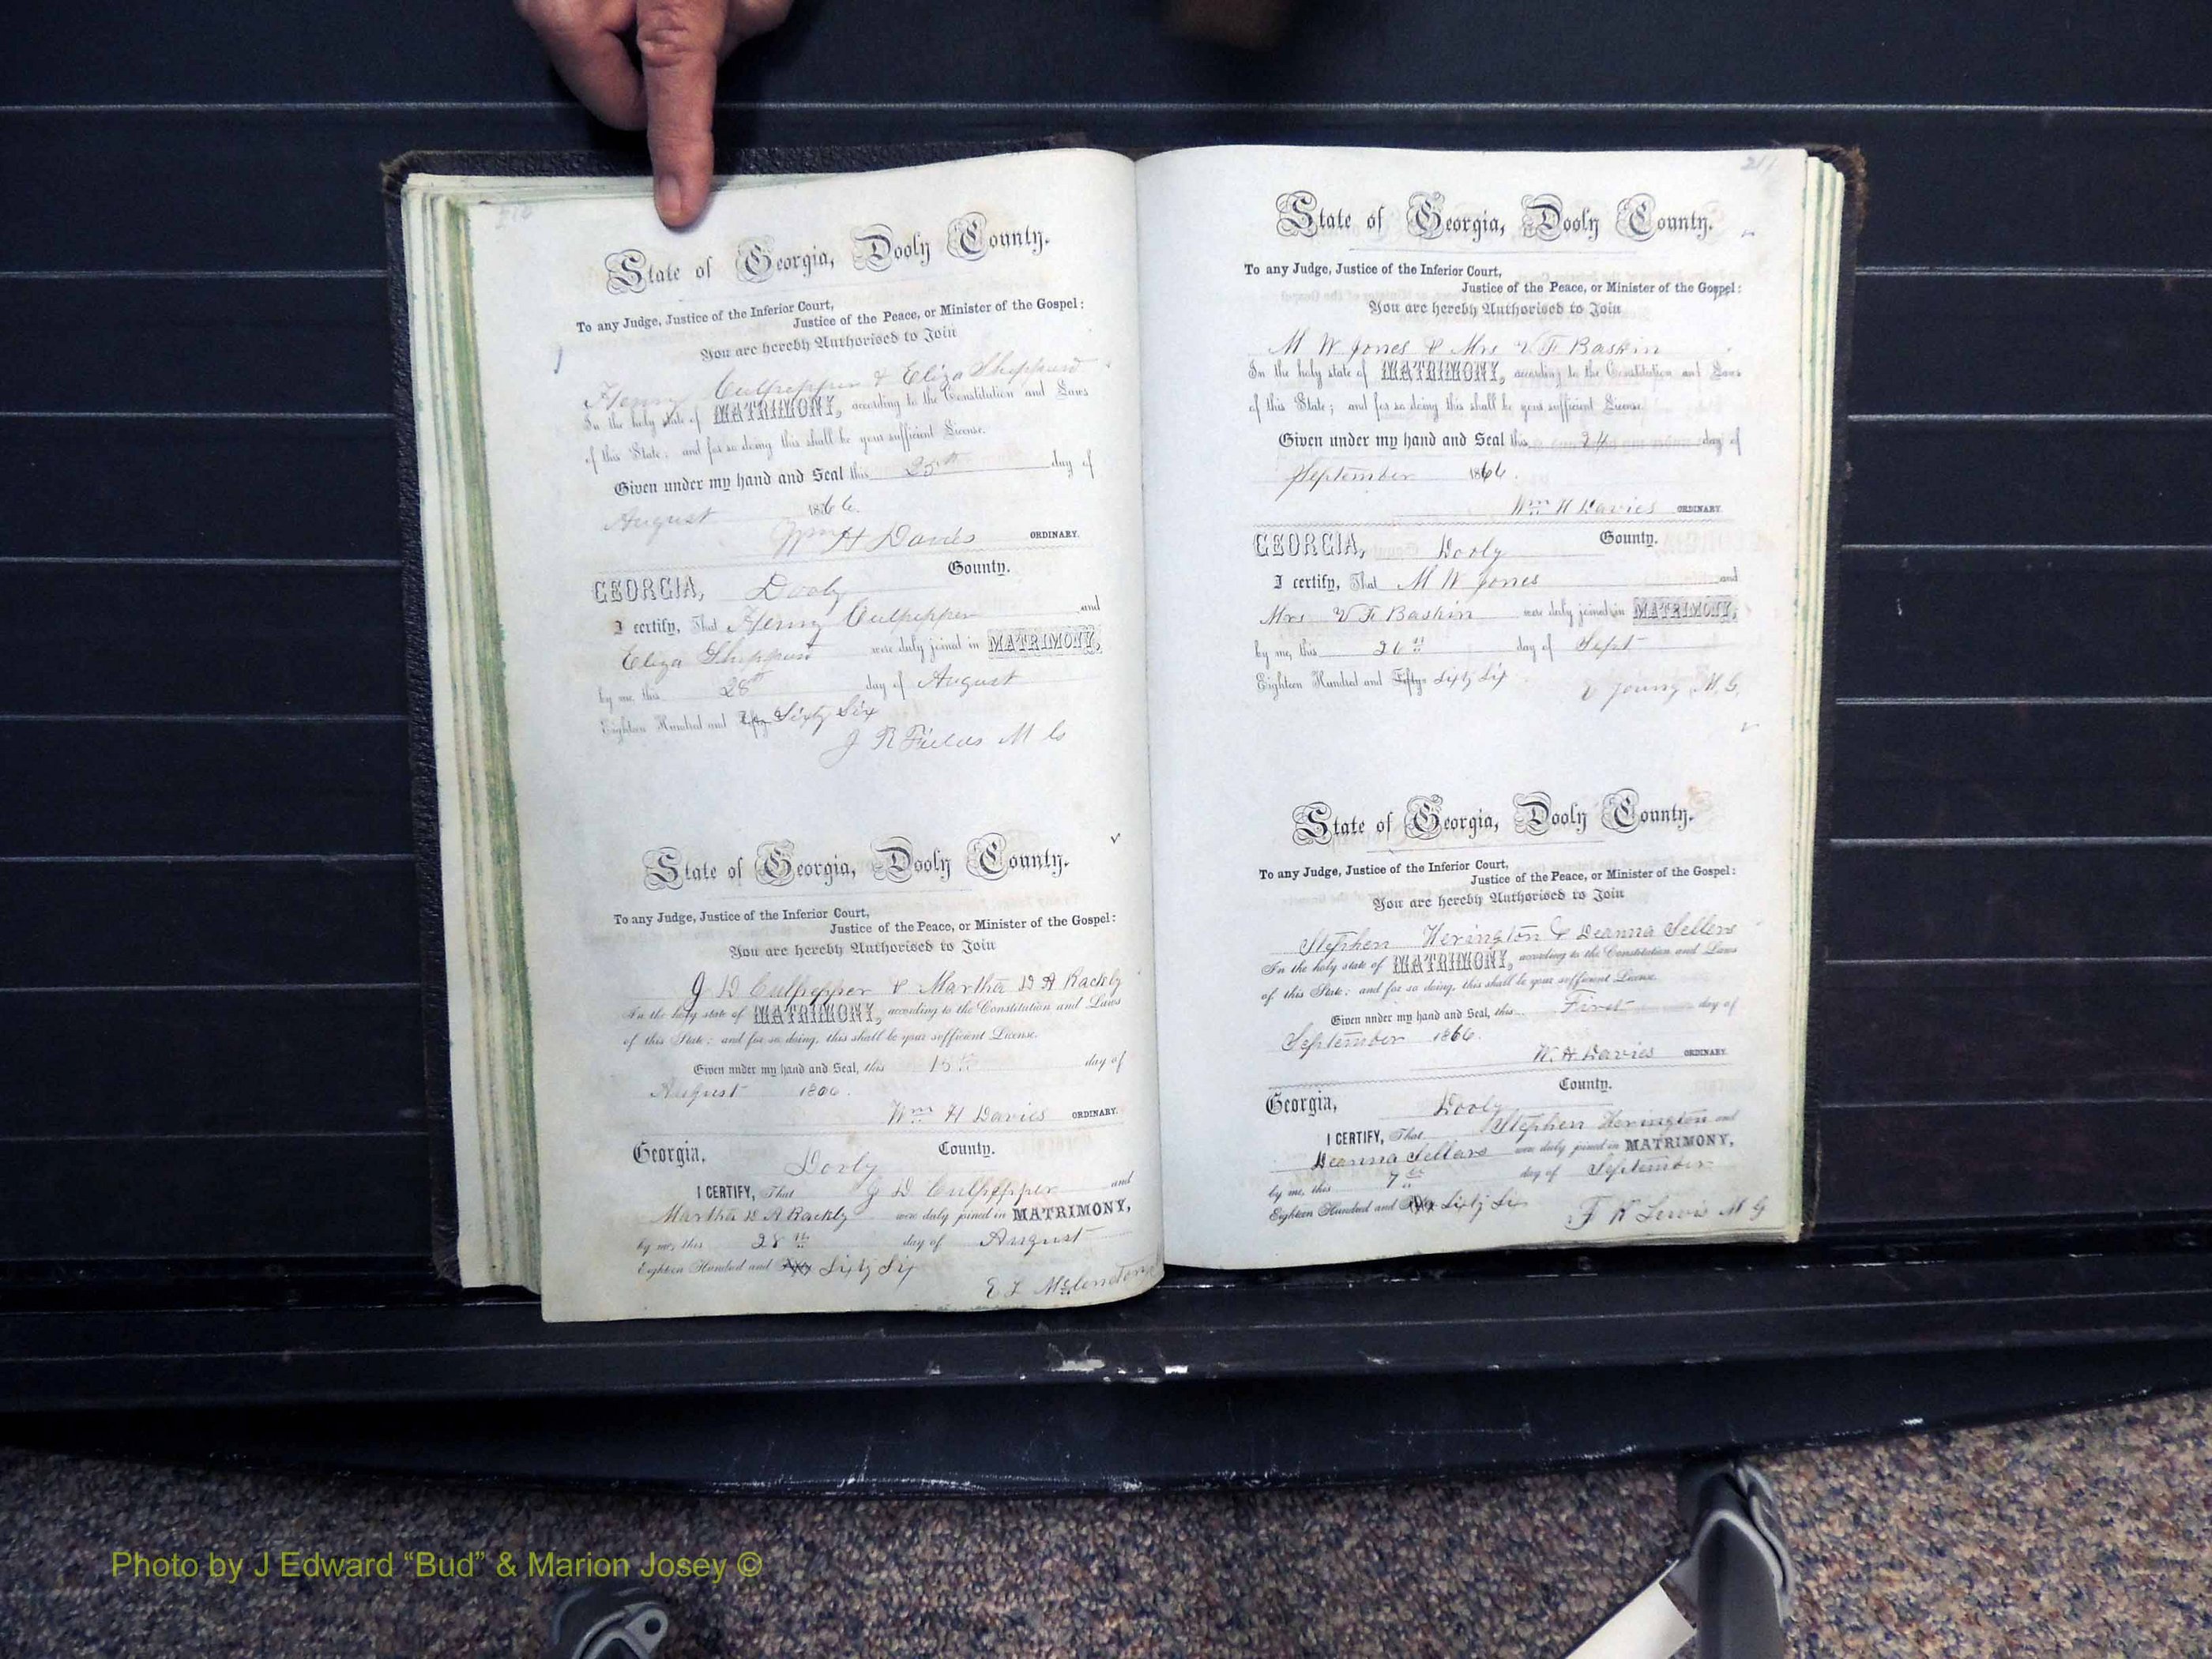 State of Georgia, Dooly County.
To any Judge, Justice of the Inferior Court,
Justice of the Peace, or Minister of the Gospel:
You are hereby Authorised to Join
Henry Culpepper & Eliza Sheppard
In the holy state of MATRIMONY, according to the Constitution and Laws
of this State; and for so doing this shall be your sufficient License.
Given under my hand and Seal this 25th day of
August 1866.
Wm H Davies ORDINARY.
GEORGIA, Dooly County.
I certify, That Henry Culpepper and
Eliza Sheppard were duly joined in MATRIMONY,
by me this 28th day of August
Eighteen Hundred and Fifty Sixty Six
J R Fields M G
State of Georgia, Dooly County.
To any Judge, Justice of the Inferior Court,
Justice of the Peace, or Minister of the Gospel:
You are hereby Authorised to Join
J D Culpepper & Martha D A Rackly
In the holy state of MATRIMONY, according to the Constitution and Laws
of this State: and for so doing, this shall be your sufficient License.
Given under my hand and Seal, this 15th day of
August 1866.
Wm H Davies ORDINARY.
Georgia, Dooly County.
I CERTIFY, That J D Culpepper and
Martha D A Rackly were duly joined in MATRIMONY,
by me, this 28th day of August
Eighteen Hundred and Fifty Sixty Six
E L McLendon
211
State of Georgia, Dooly County.
To any Judge, Justice of the Inferior Court,
Justice of the Peace, or Minister of the Gospel:
You are hereby Authorised to Join
M W Jones & Mrs V F Baskin
In the holy state of MATRIMONY, according to the Constitution and Laws
of this State; and for so doing this shall be your sufficient License.
Given under my hand and Seal this 24 day of
September 1866.
Wm H Davies ORDINARY.
GEORGIA, Dooly County.
I certify, That M W Jones and
Mrs V F Baskin were duly joined in MATRIMONY,
by me, this 26th day of Sept
Eighteen Hundred and Fifty Sixty Six
E Young M.G.
State of Georgia, Dooly County.
To any Judge, Justice of the Inferior Court,
Justice of the Peace, or Minister of the Gospel:
You are hereby Authorised to Join
Stephen Herington & Deanna Sellers
In the holy state of MATRIMONY, according to the Constitution and Laws
of this State: and for so doing, this shall be your sufficient License.
Given under my hand and Seal, this First day of
September 1866.
W. H. Davies ORDINARY.
Georgia, Dooly County.
I CERTIFY, That Stephen Herington and
Deanna Sellars were duly joined in MATRIMONY,
by me, this 7th day of September
Eighteen Hundred and Fifty Sixty Six
F K Lewis M G
Photo by J Edward “Bud” & Marion Josey ©